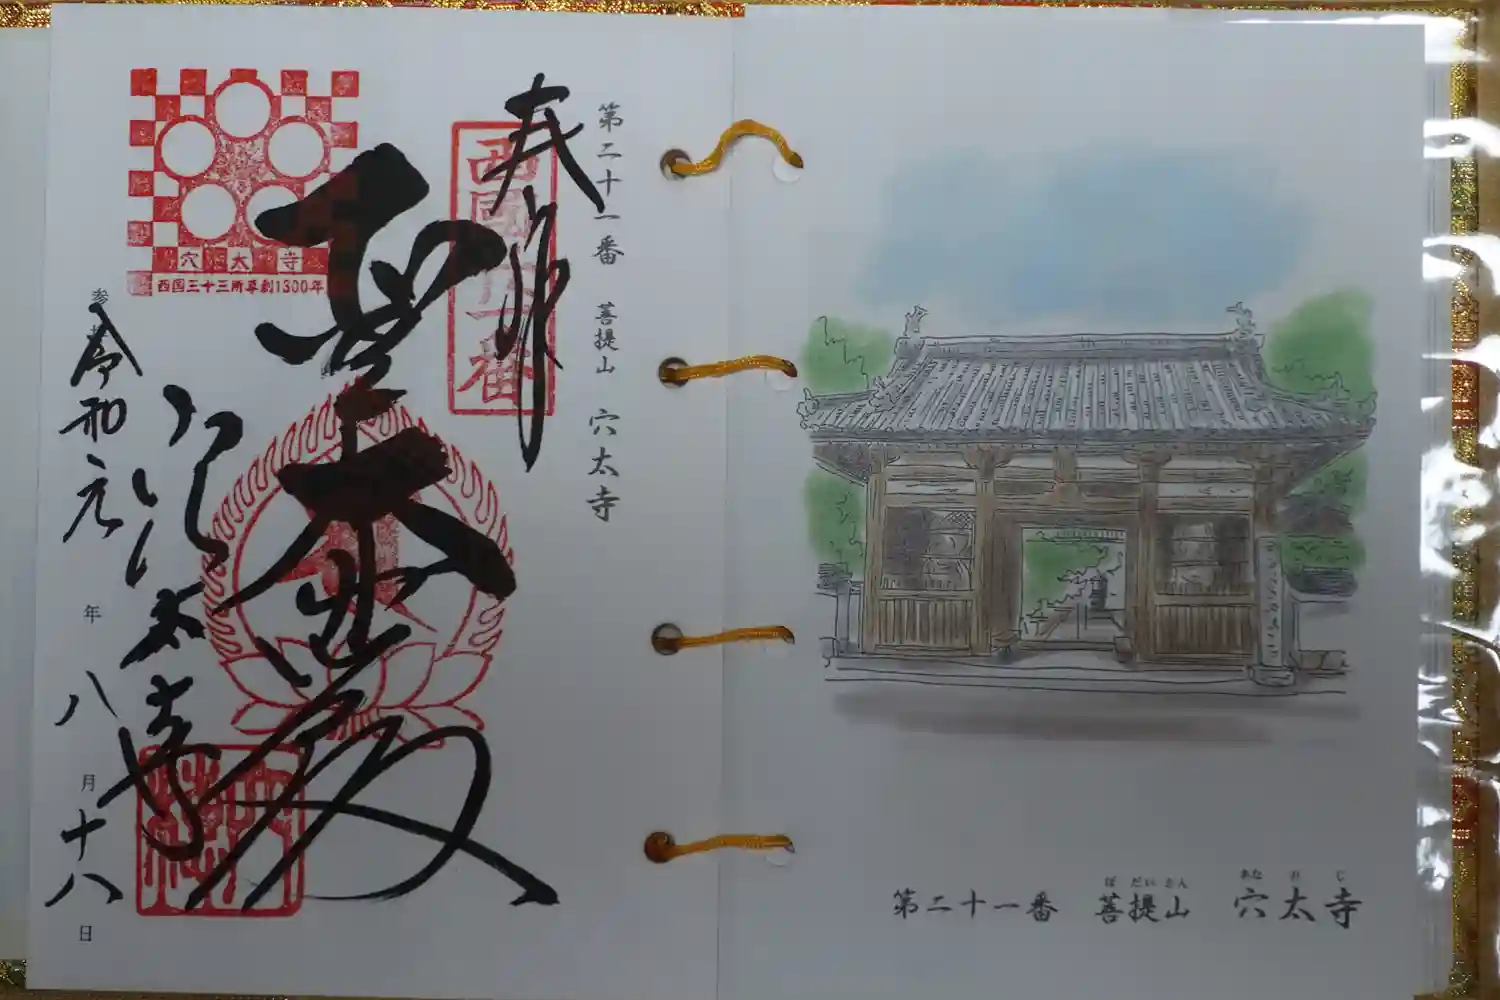 第二十一番 菩提山 穴太寺
奉拝
西国廿一番
聖大悲殿
穴太寺
西国三十三所草創1300年
穴太寺
参拝
令和元年八月十八日
第二十一番 菩提山 穴太寺
ぼだいさん あなおじ